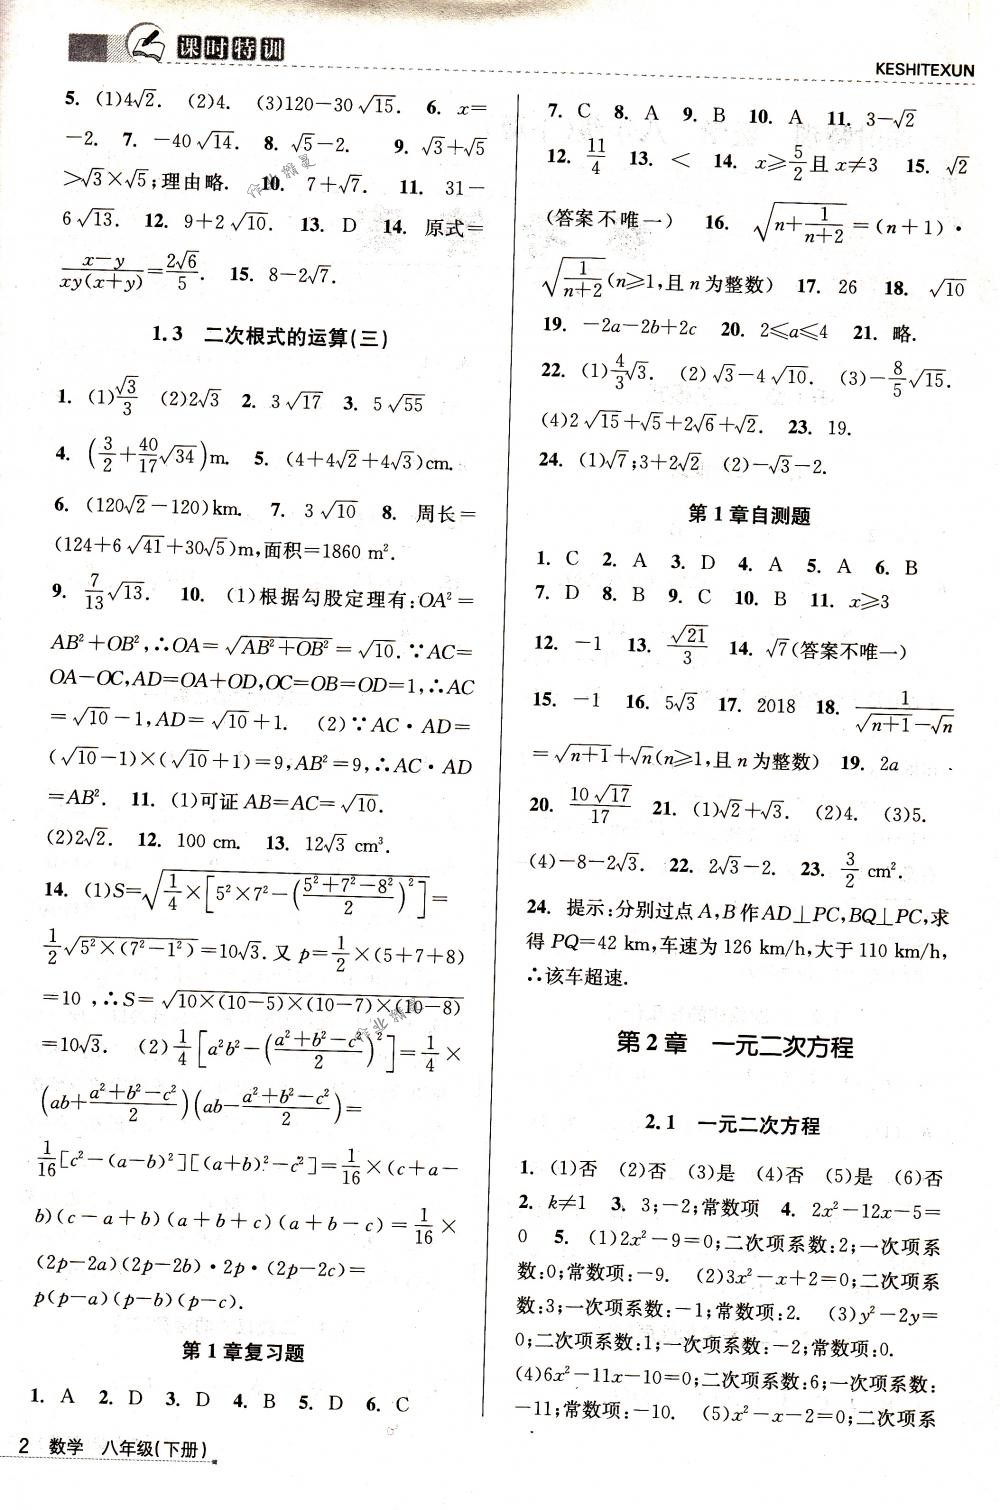 课时特训
KESHITEXUN
5. (1)4√2. (2)4. (3)120－30√15. 6. x＝
－2. 7. －40√14. 8. √5－2. 9. √3＋√5
＞√3×√5;理由略. 10. 7＋√7. 11. 31－
6√13. 12. 9＋2√10. 13. D 14. 原式＝
(x－y)/(xy(x＋y))＝2√6/5. 15. 8－2√7.
1.3 二次根式的运算(三)
1. (1)√3/3 (2)2√3 2. 3√17 3. 5√55
4. (3/2＋40/17√34)m. 5. (4＋4√2＋4√3)cm.
6. (120√2－120)km. 7. 3√10 8. 周长＝
(124＋6√41＋30√5)m,面积＝1860 m².
9. 7/13√13. 10. (1)根据勾股定理有:OA²＝
AB²＋OB²,∴OA＝√(AB²＋OB²)＝√10.∵AC＝
OA－OC,AD＝OA＋OD,OC＝OB＝OD＝1,∴AC
＝√10－1,AD＝√10＋1. (2)∵AC·AD＝
(√10－1)×(√10＋1)＝9,AB²＝9,∴AC·AD
＝AB². 11. (1)可证AB＝AC＝√10.
(2)2√2. 12. 100 cm. 13. 12√3 cm³.
14. (1)S＝√(1/4×[5²×7²－((5²＋7²－8²)/2)²])＝
1/2√(5²×(7²－1²))＝10√3.又p＝1/2×(5＋7＋8)
＝10 ,∴S＝√(10×(10－5)×(10－7)×(10－8))
＝10√3. (2)1/4[a²b²－((a²＋b²－c²)/2)²]＝1/4×
(ab＋(a²＋b²－c²)/2)(ab－(a²＋b²－c²)/2)＝
1/16[c²－(a－b)²][(a＋b)²－c²]＝1/16×(c＋a－
b)(c－a＋b)(a＋b＋c)(a＋b－c)＝1/16×
(2p－2a)(2p－2b)·2p·(2p－2c)＝
p(p－a)(p－b)(p－c).
第1章复习题
1. A 2. D 3. D 4. B 5. D 6. C
2 数学 八年级(下册)
7. C 8. A 9. B 10. A 11. 3－√2
12. 11/4 13. ＜ 14. x≥5/2且x≠3 15. √2
(答案不唯一) 16. √(n＋1/(n＋2))＝(n＋1)·
√(1/(n＋2))(n≥1,且n为整数) 17. 26 18. √10
19. －2a－2b＋2c 20. 2≤a≤4 21. 略.
22. (1)4/3√3. (2)√3－4√10. (3)－8/5√15.
(4)2√15＋√5＋2√6＋√2. 23. 19.
24. (1)√7;3＋2√2 (2)－√3－2.
第1章自测题
1. C 2. A 3. D 4. A 5. A 6. B
7. D 8. B 9. C 10. B 11. x≥3
12. －1 13. √21/3 14. √7(答案不唯一)
15. －1 16. 5√3 17. 2018 18. 1/(√(n＋1)－√n)
＝√(n＋1)＋√n(n≥1,且n为整数) 19. 2a
20. 10√17/17 21. (1)√2＋√3. (2)4. (3)5.
(4)－8－2√3. 22. 2√3－2. 23. 3/2 cm².
24. 提示:分别过点A,B作AD⊥PC,BQ⊥PC,求
得PQ＝42 km,车速为126 km/h,大于110 km/h,
∴该车超速.
第2章 一元二次方程
2.1 一元二次方程
1. (1)否 (2)否 (3)是 (4)否 (5)是 (6)否
2. k≠1 3. 3;－2;常数项 4. 2x²－12x－5＝
0 5. (1)2x²－9＝0;二次项系数:2;一次项系
数:0;常数项:－9. (2)3x²－x＋2＝0;二次项系
数:3;一次项系数:－1;常数项:2. (3)y²－2y＝
0;二次项系数:1;一次项系数:－2;常数项:0.
(4)6x²－11x－10＝0;二次项系数:6;一次项系数:
－11;常数项:－10. (5)x²－x－2＝0;二次项系
作业精灵
作业精灵